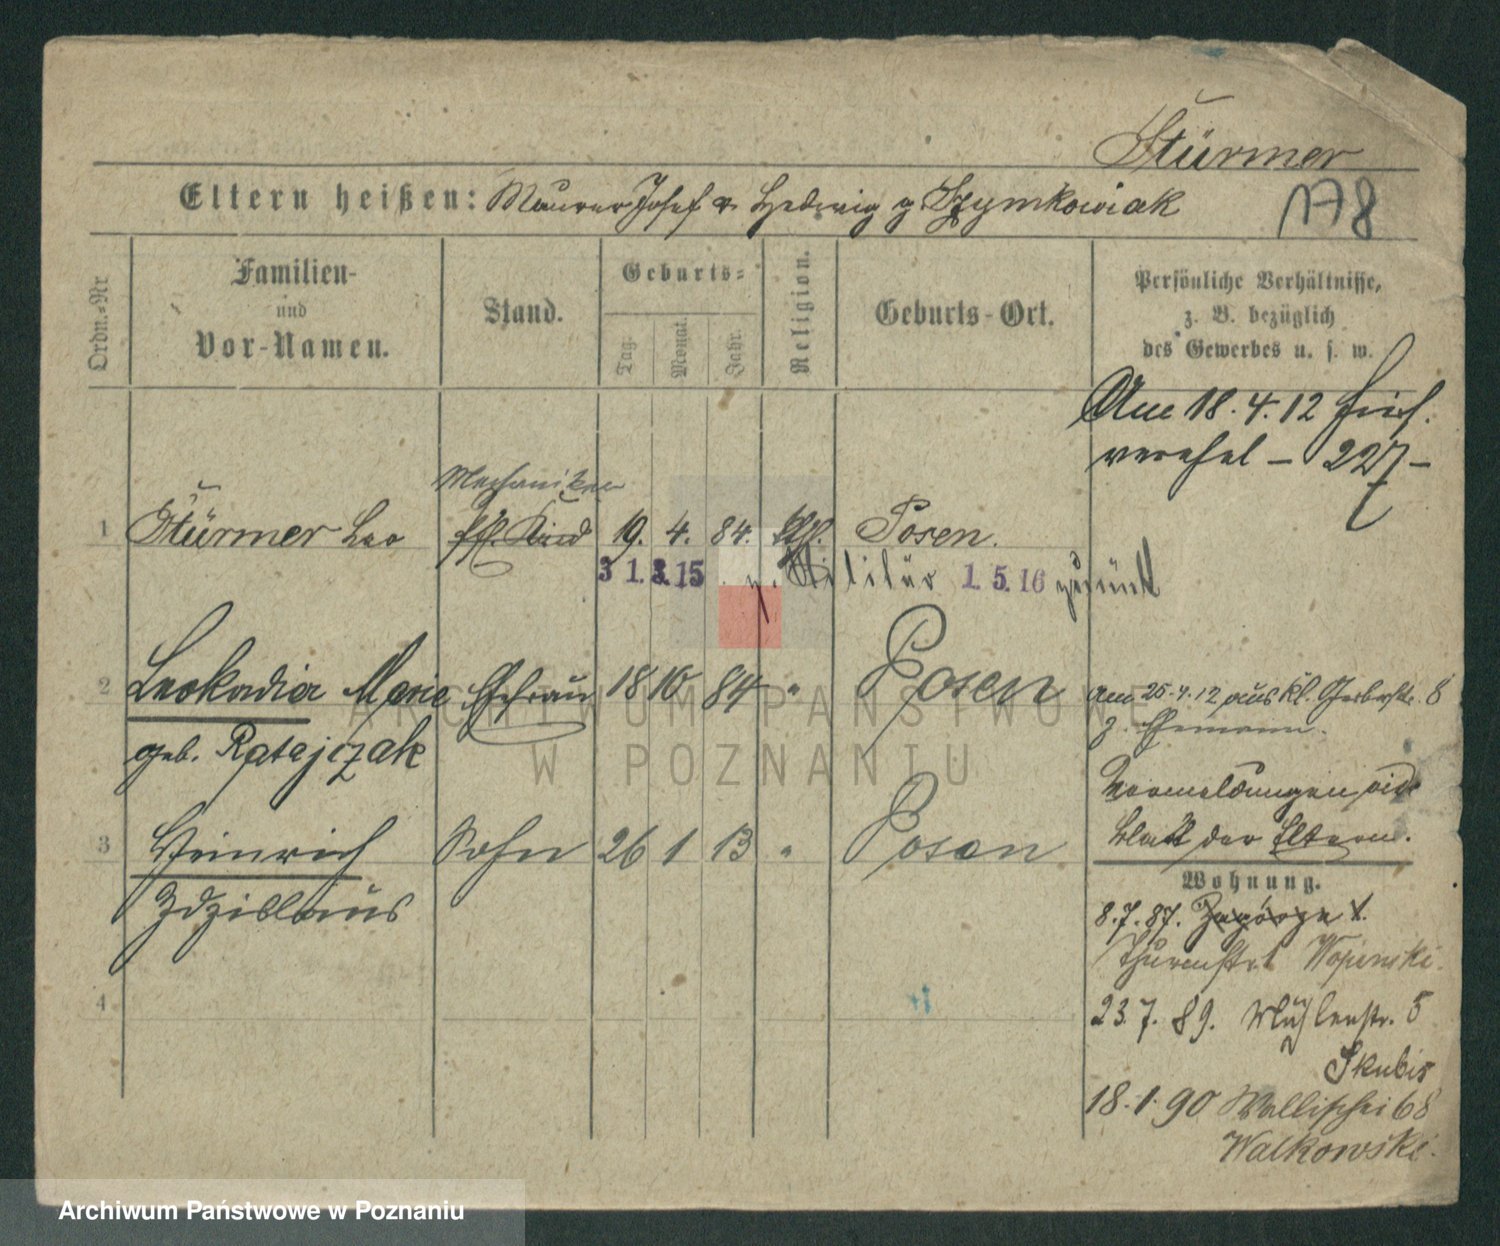 Stürmer
Eltern heißen: Maurer Josef u. Hedwig g. Szymkowiak
178
Ordn.-Nr
Familien-
und
Vor-Namen.
Stand.
Geburts-
Tag.
Monat.
Jahr.
Religion.
Geburts-Ort.
Persönliche Verhältnisse,
z. B. bezüglich
des Gewerbes u. s. w.
Am 18.4.12 hies.
verehel – 227 –
Mechaniker
1 Stürmer Leo Kind 19. 4. 84. Posen.
31.3.15 z. Militär 1.5.16 zurück
2 Leokadia Marie Ehefrau 18 10 84 " Posen
am 25.4.12 aus Kl. Gerberstr. 8
z. Ehemann.
geb. Ratajczak
Vormeldungen
Blatt der Eltern.
3 Heinrich Sohn 26 1 13 " Posen
Zdzislaus
Wohnung.
8.7.87. Zagórze 1.
Thurmstr. 1
23 7. 89. Mühlenstr. 5
Skubis
18.1.90 Wallischei 68
Walkowski.
4
ARCHIWUM PAŃSTWOWE
W POZNANIU
Archiwum Państwowe w Poznaniu